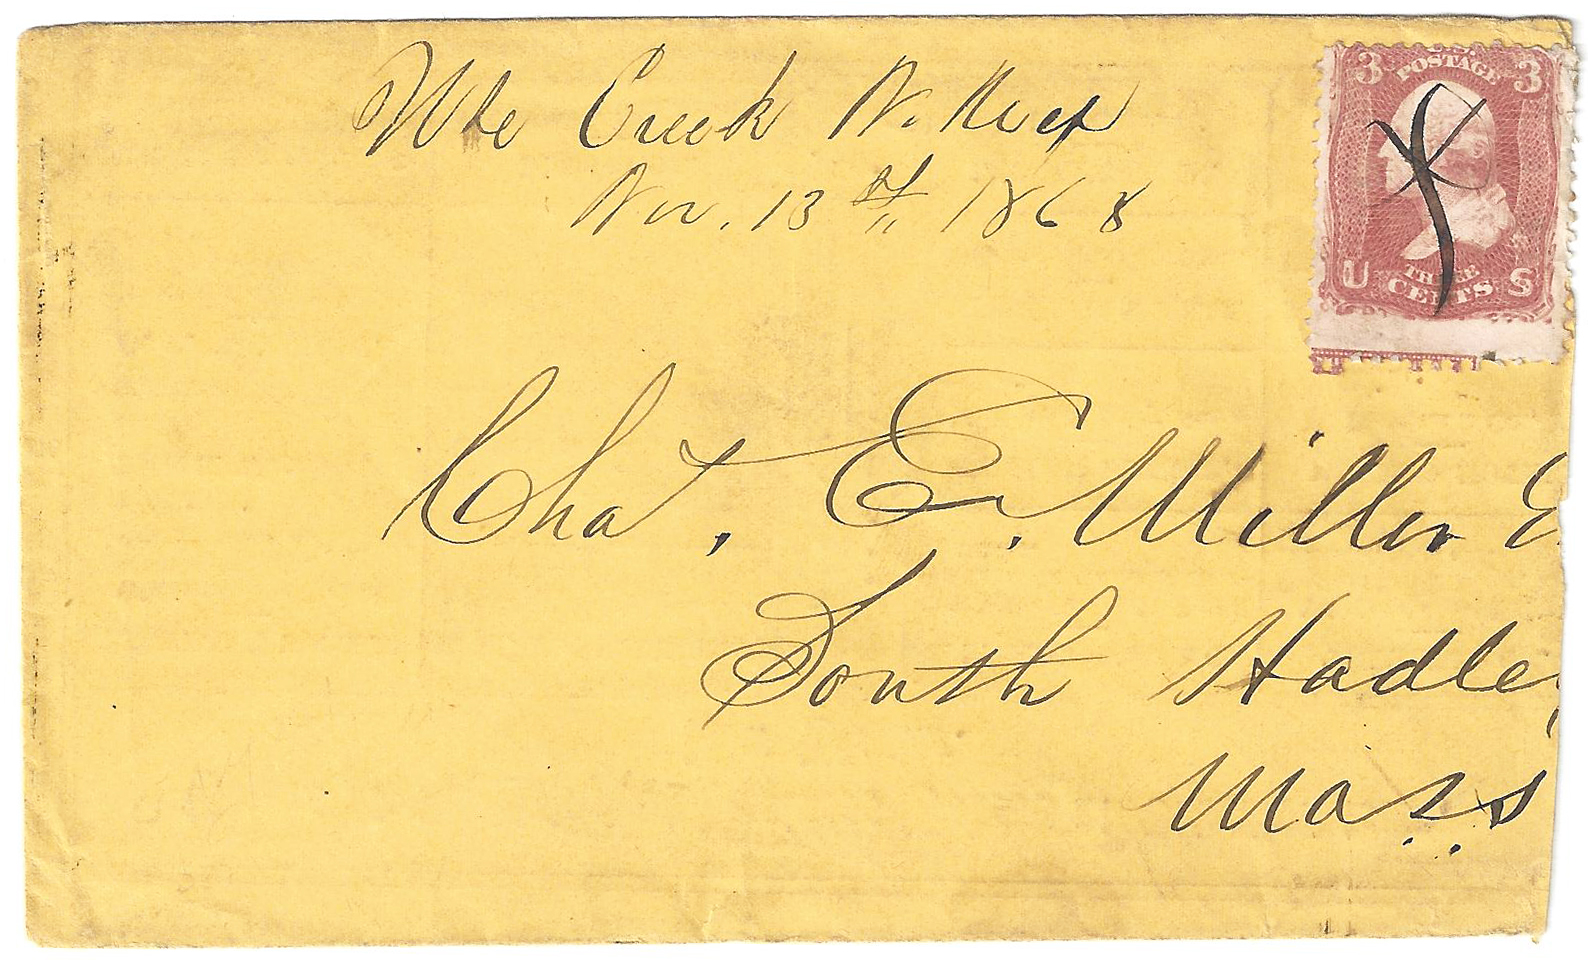 Ute Creek N. Mex
Nov. 13th 1868
3 POSTAGE 3
U THREE S
CENTS
Chas. E. Miller
South Hadley
Mass